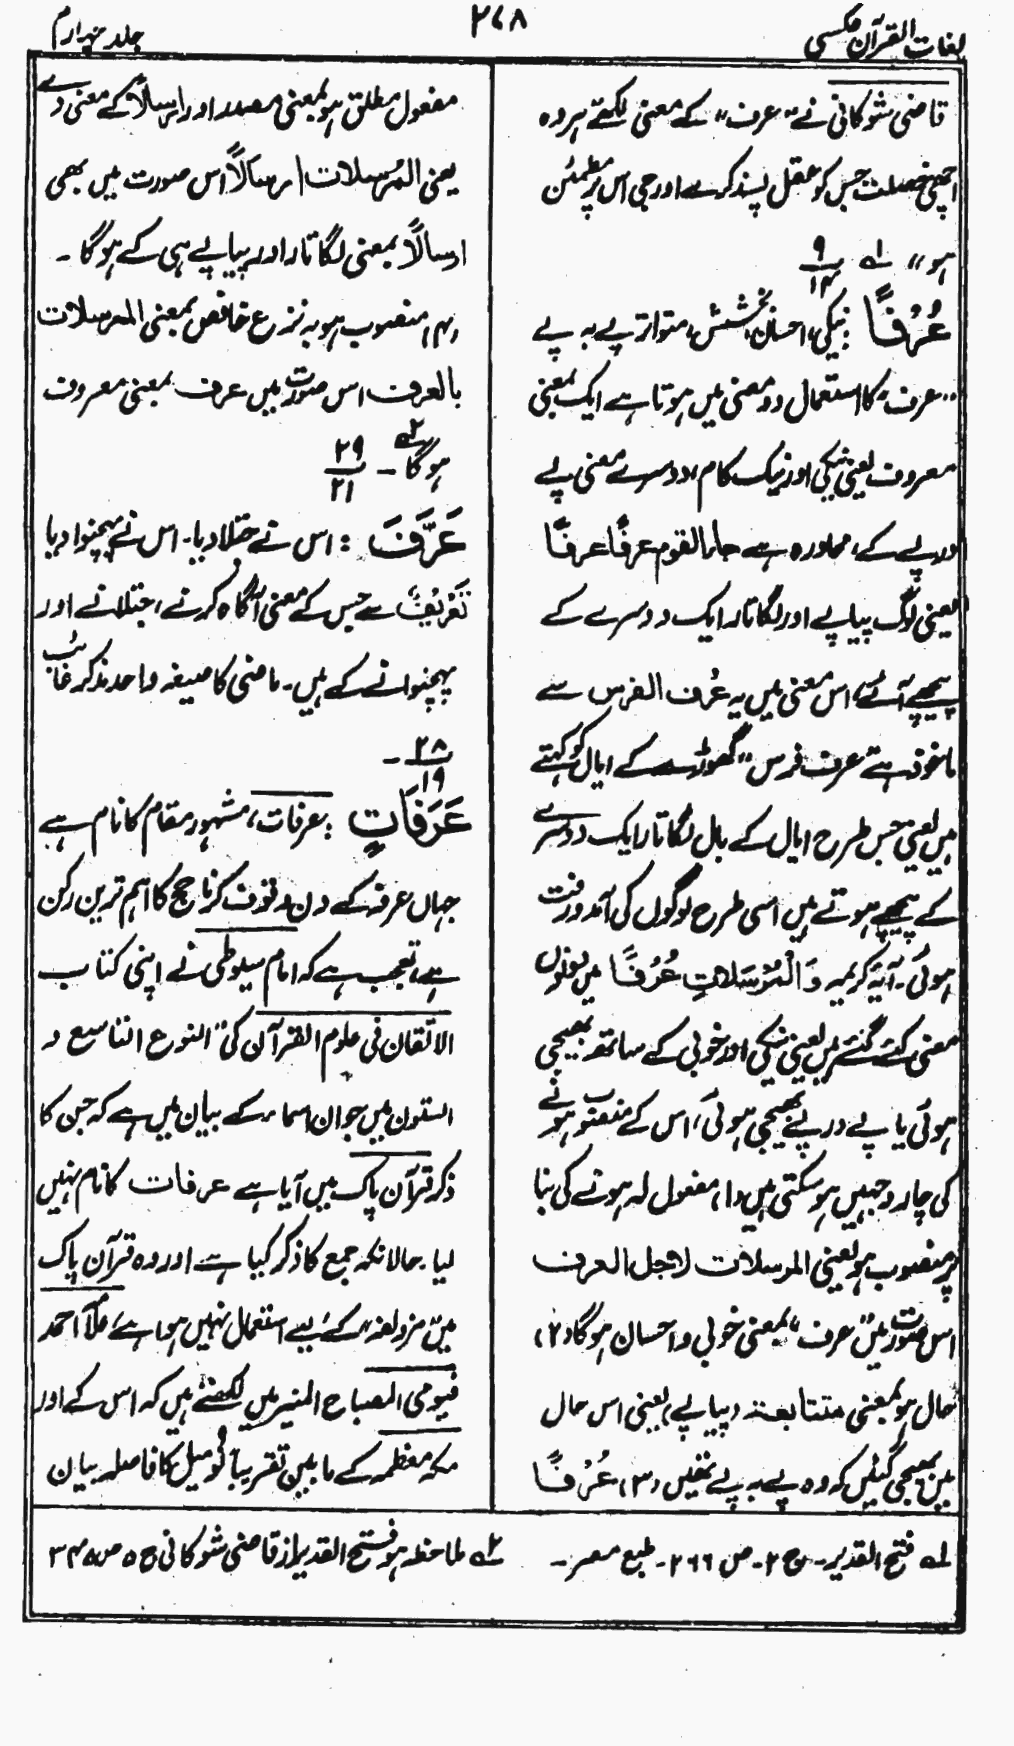 لغات القرآن عکسی
۲۶۸
جلد چہارم
قاضی شوکانی نے "عرف" کے معنی لکھتے ہیں وہ
اچھی خصلت جس کو عقل پسند کرے اور جی اس پر مطمئن
ہو" ۱ے ۹/۱۴
عُرْفًا : نیکی، احسان، بخشش، متواتر پے بہ پے
"عرف" کا استعمال دو معنی میں ہوتا ہے ایک بمعنی
معروف یعنی نیکی اور نیک کام، دوسرے معنی پے
در پے کے، محاورہ ہے جاء القوم عرفًا عرفًا
یعنی لوگ پیاپے اور لگاتار ایک دوسرے کے
پیچھے آئے، اس معنی میں یہ عُرف الفرس سے
ماخوذ ہے عرف فرس "گھوڑے کے ایال کو کہتے
ہیں یعنی جس طرح ایال کے بال لگاتار ایک دوسرے
کے پیچھے ہوتے ہیں اسی طرح لوگوں کی آمد و رفت
ہوئی۔ آیۂ کریمہ وَالْمُرْسَلَاتِ عُرْفًا میں دونوں
معنی کئے گئے ہیں یعنی نیکی اور خوبی کے ساتھ بھیجی
ہوئی یا پے در پے بھیجی ہوئی، اس کے منصوب ہونے
کی چار وجہیں ہو سکتی ہیں (۱) مفعول لہ ہونے کی بنا
پر منصوب ہو یعنی المرسلات لاجل العرف
اس صورت میں "عرف" بمعنی خوبی و احسان ہوگا (۲)
حال ہو بمعنی متتابعۃ (پیاپے) یعنی اس حال
میں بھیجی گئیں کہ وہ پے بہ پے تھیں (۳) عُرْفًا
مفعول مطلق ہو بمعنی مصدر اور ارسالًا کے معنی دے
یعنی المُرسلات ارسالًا اس صورت میں بھی
ارسالًا بمعنی لگاتار اور پیاپے ہی کے ہوگا ۔
(۴) منصوب ہو بہ نزع خافض بمعنی المرسلات
بالعرف اس صورت میں عرف بمعنی معروف
ہوگا ۲ے ۔ ۲۹/۲۱
عَرَّفَ : اس نے جتلا دیا۔ اس نے پہچنوا دیا
تَعْرِيْفٌ سے جس کے معنی آگاہ کرنے، جتلانے اور
پہچنوانے کے ہیں۔ ماضی کا صیغہ واحد مذکر غائب
۲۸/۱۹ ۔
عَرَفَاتٍ : عرفات، مشہور مقام کا نام ہے
جہاں عرفہ کے دن وقوف کرنا حج کا اہم ترین رکن
ہے، تعجب ہے کہ امام سیوطی نے اپنی کتاب
الاتقان فی علوم القرآن کی "النوع التاسع و
الستون میں جو ان اسماء کے بیان میں ہے کہ جن کا
ذکر قرآن پاک میں آیا ہے عرفات کا نام نہیں
لیا۔ حالانکہ جمع کا ذکر کیا ہے اور وہ قرآن پاک
میں مزدلفہ" کے لیے استعمال نہیں ہوا ہے، ملّا احمد
فیومی المصباح المنیر میں لکھتے ہیں کہ اس کے اور
مکہ معظمہ کے مابین تقریباً نو میل کا فاصلہ بیان
۱ے فتح القدیر۔ ج ۲۔ ص ۲۶۶۔ طبع مصر۔
۲ے ملاحظہ ہو فتح القدیر از قاضی شوکانی ج ۵ ص ۳۴۵